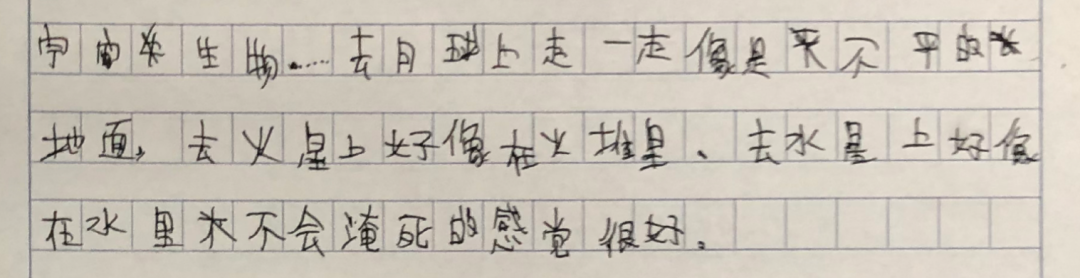 宇宙生物……去月球上走一走像是不平的
地面，去火星上好像在火堆里、去水星上好像
在水里不会淹死的感觉很好。